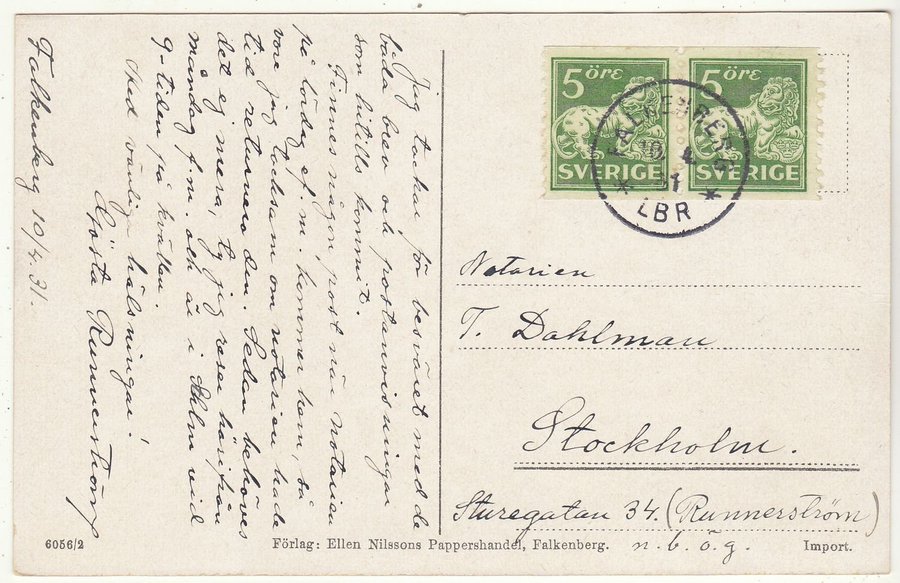 Jag tackar för besväret med de
båda brev och postanvisningar
som hitills kommit.
Finnes någon post när notarien
på lördag e.m. kommer hem, så
vore jag tacksam om notarien hade
tid returnera den. Sedan behöves
det ej mera, ty jag reser härifrån
måndag f.m. och är i Sthlm vid
9-tiden på kvällen.
Med vänlig hälsningar!
Gösta Runnerström
Falkenberg 10/4.31.
5 ÖRE
SVERIGE
5 ÖRE
SVERIGE
FALKENBERG
10 4
31
LBR
Notarien
T. Dahlman
Stockholm.
Sturegatan 34. (Runnerström)
n. b. ö. g.
6056/2
Förlag: Ellen Nilssons Pappershandel, Falkenberg.
Import.